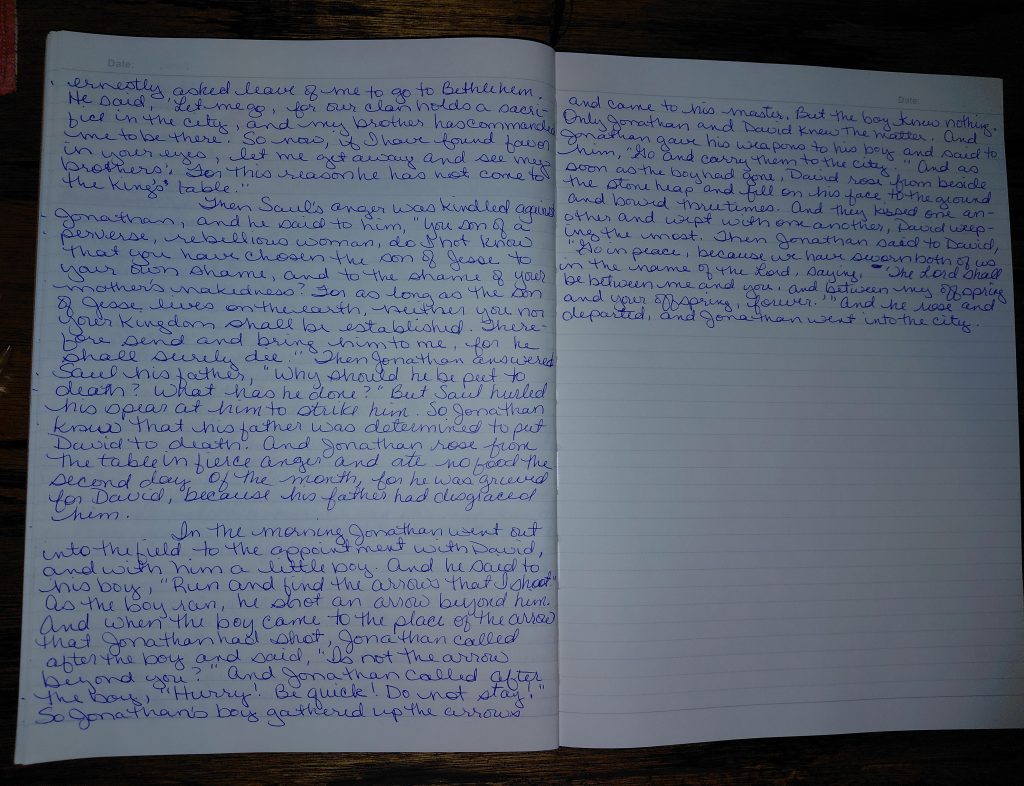 Date:
ernestly asked leave of me to go to Bethlehem.
He said, 'Let me go, for our clan holds a sacri-
fice in the city, and my brother has commanded
me to be there. So now, if I have found favor
in your eyes, let me get away and see my
brothers'. For this reason he has not come to
the King's table."
Then Saul's anger was kindled against
Jonathan, and he said to him, "You son of a
perverse, rebellious woman, do I not know
that you have chosen the son of Jesse to
your own shame, and to the shame of your
mother's nakedness? For as long as the son
of Jesse lives on the earth, neither you nor
your Kingdom shall be established. There-
fore send and bring him to me, for he
shall surely die." Then Jonathan answered
Saul his father, "Why should he be put to
death? What has he done?" But Saul hurled
his spear at him to strike him. So Jonathan
knew that his father was determined to put
David to death. And Jonathan rose from
the table in fierce anger and ate no food the
second day of the month, for he was grieved
for David, because his father had disgraced
him.
In the morning Jonathan went out
into the field to the appointment with David,
and with him a little boy. And he said to
his boy, "Run and find the arrows that I shoot"
As the boy ran, he shot an arrow beyond him.
And when the boy came to the place of the arrow
that Jonathan had shot, Jonathan called
after the boy and said, "Is not the arrow
beyond you?" And Jonathan called after
the boy, "Hurry! Be quick! Do not stay!"
So Jonathan's boy gathered up the arrows
Date:
and came to his master. But the boy knew nothing.
Only Jonathan and David knew the matter. And
Jonathan gave his weapons to his boy and said to
him, "Go and carry them to the city." And as
soon as the boy had gone, David rose from beside
the stone heap and fell on his face to the ground
and bowed three times. And they kissed one an-
other and wept with one another, David weep-
ing the most. Then Jonathan said to David,
"Go in peace, because we have sworn both of us
in the name of the Lord, saying, 'The Lord shall
be between me and you, and between my offspring
and your offspring, forever.'" And he rose and
departed, and Jonathan went into the city.